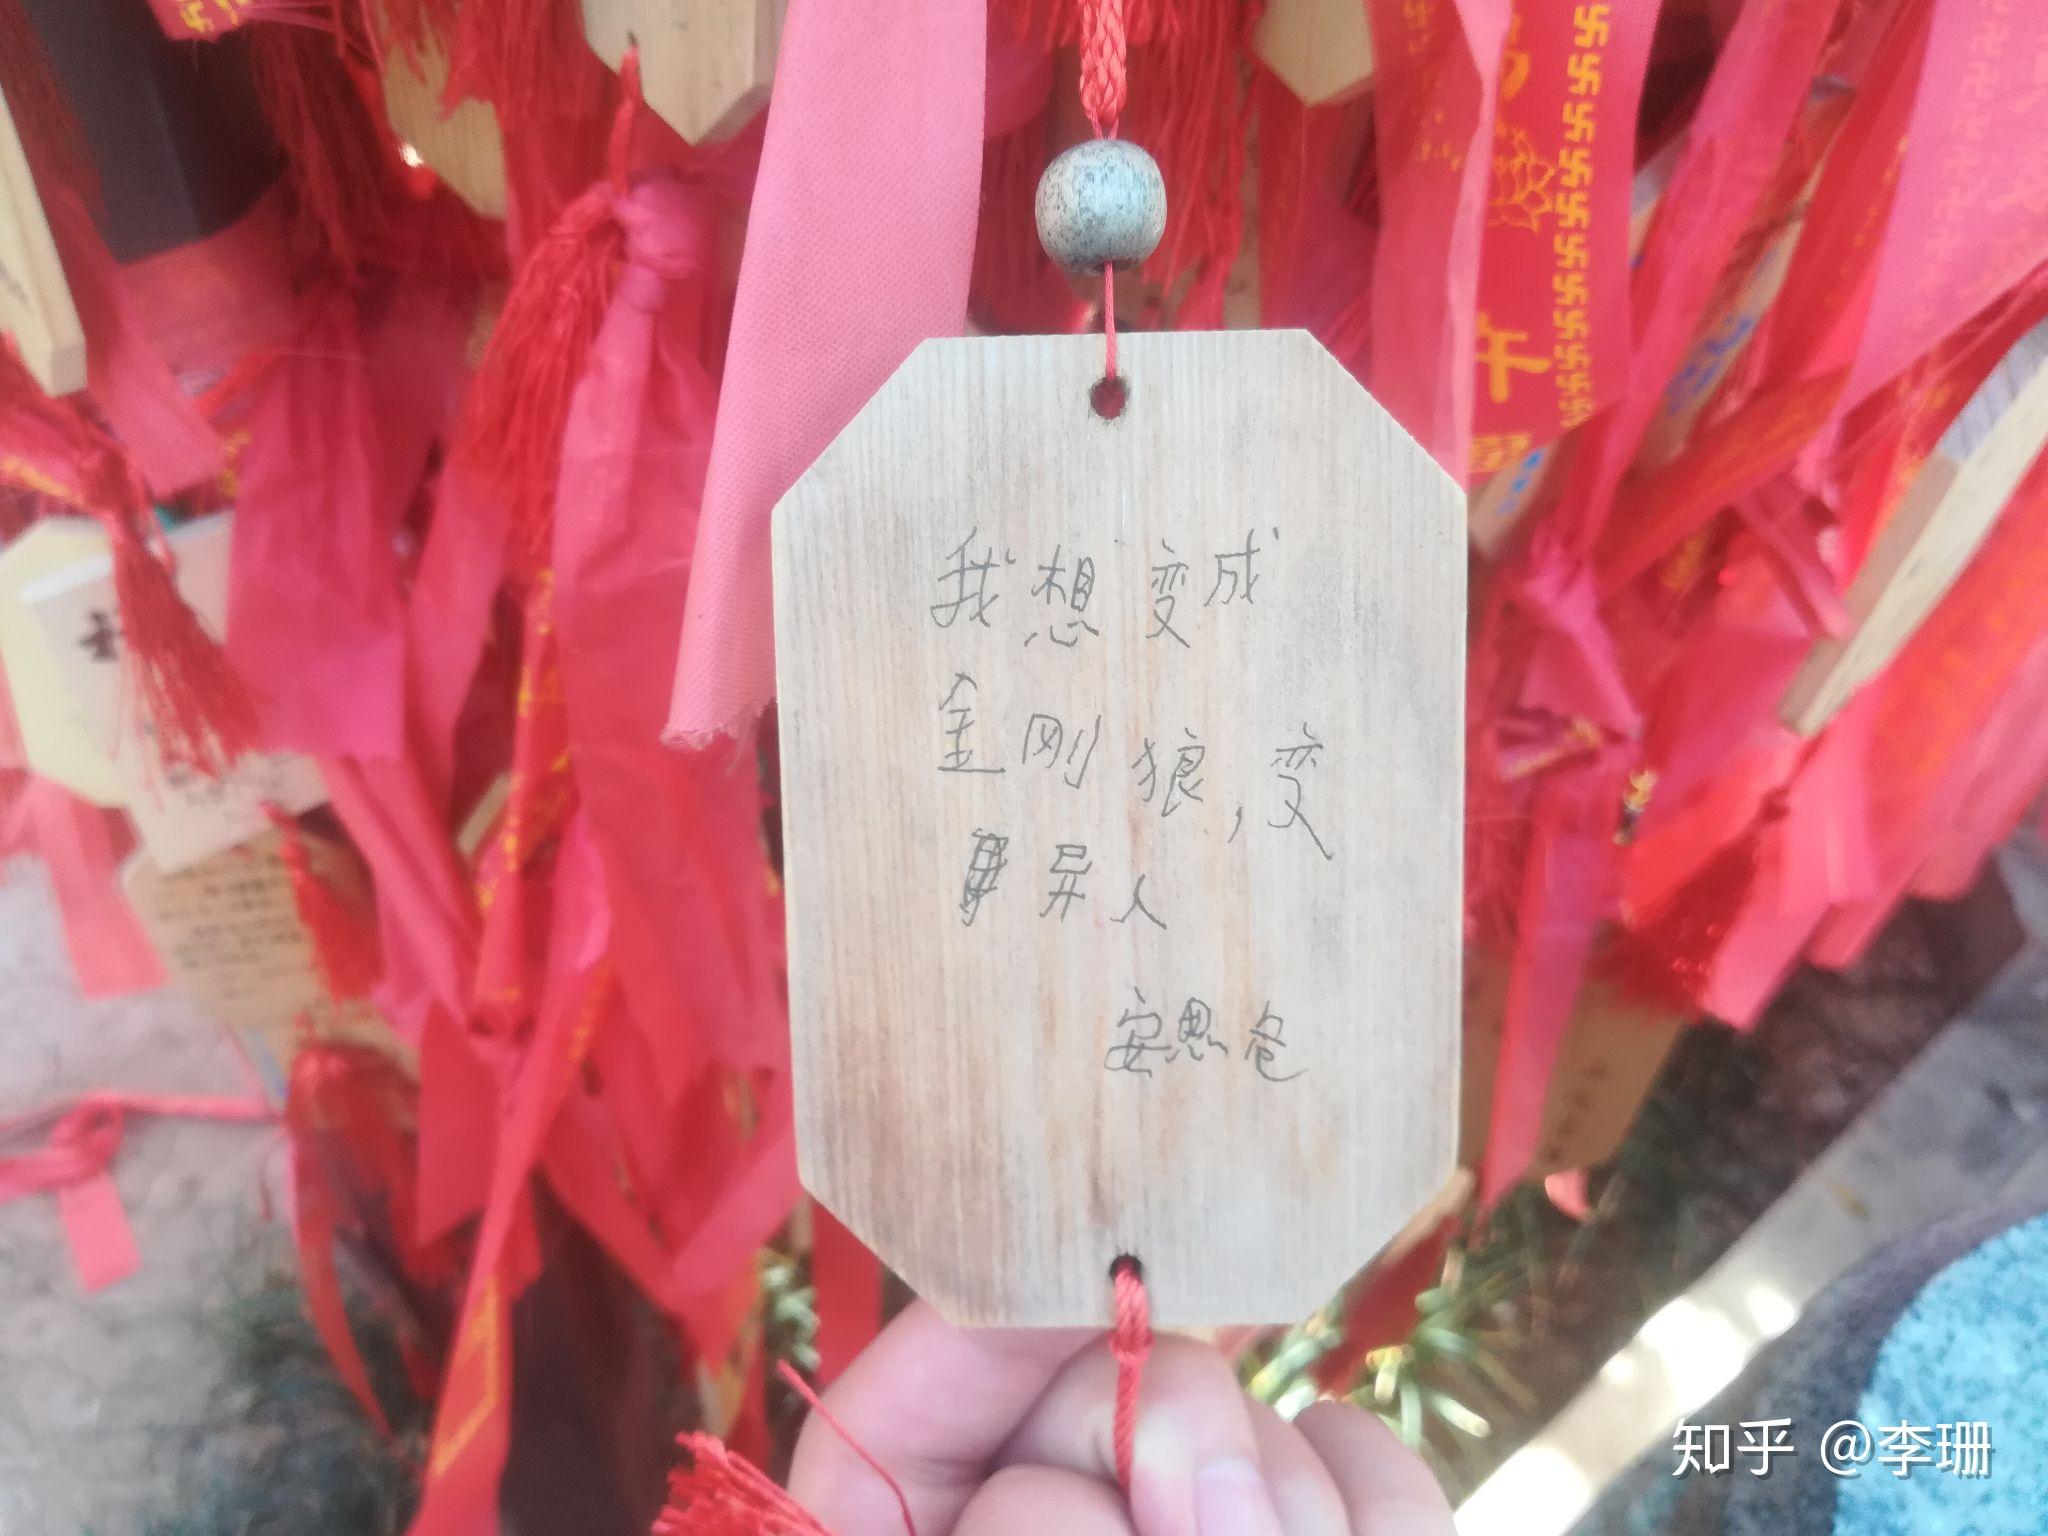 我想变成
金刚狼，变
异人
安思爸
知乎 @李珊